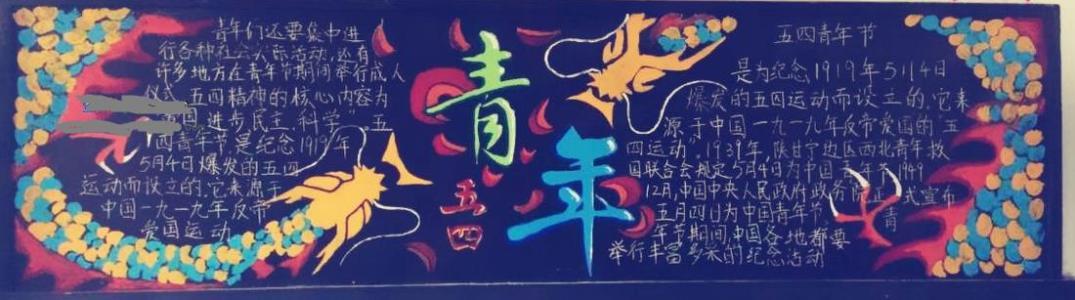 青年们还要集中进
行各种社会实际活动,还有
许多地方在青年节期间举行成人
仪式。五四精神的核心内容为
国 进步民主 科学”。五
四青年节是纪念1919年
5月4日爆发的五四
运动而设立的,它来源于
中国一九一九年反帝
爱国运动
青年
五四
五四青年节
是为纪念1919年5月4日
爆发的五四运动而设立的,它来
源于中国一九一九年反帝爱国的“五
四运动”1939年,陕甘宁边区西北青年救
国联合会规定5月4日为中国青年节1949
12月,中国中央人民政府政务院正式宣布
五月四日为中国青年节 青
年节期间,中国各地都要
举行丰富多采的纪念活动